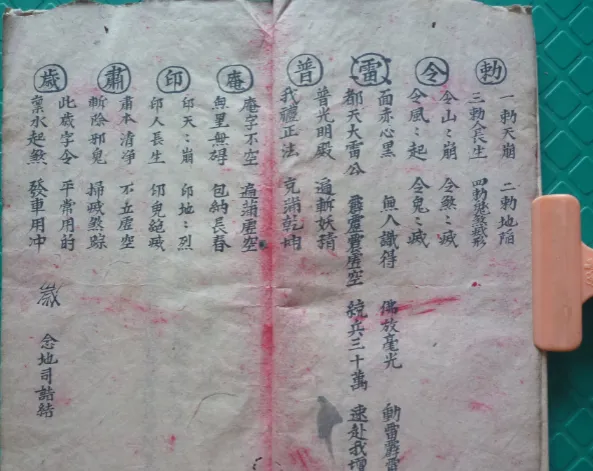 勅
一勅天崩 二勅地陷
三勅人長生 四勅鬼煞滅形
令
令山〻崩 令煞〻滅
令風〻起 令鬼〻滅
雷
面赤心黑 無人識得 佛放毫光 動雷霹靂
都天大雷公 霹靂震虛空 統兵三十萬 速赴我壇
普
普光明殿 遍斬妖精
我禮正法 充滿乾坤
庵
庵字不空 遍滿虛空
無里無碍 包納長春
印
印天〻崩 印地〻烈
印人長生 印鬼絕滅
肅
肅本清淨 不立虛空
斬除邪鬼 掃滅煞踪
歲
此歲字令 平常用的
稟水起煞 發車用冲 歲 念地司誥結